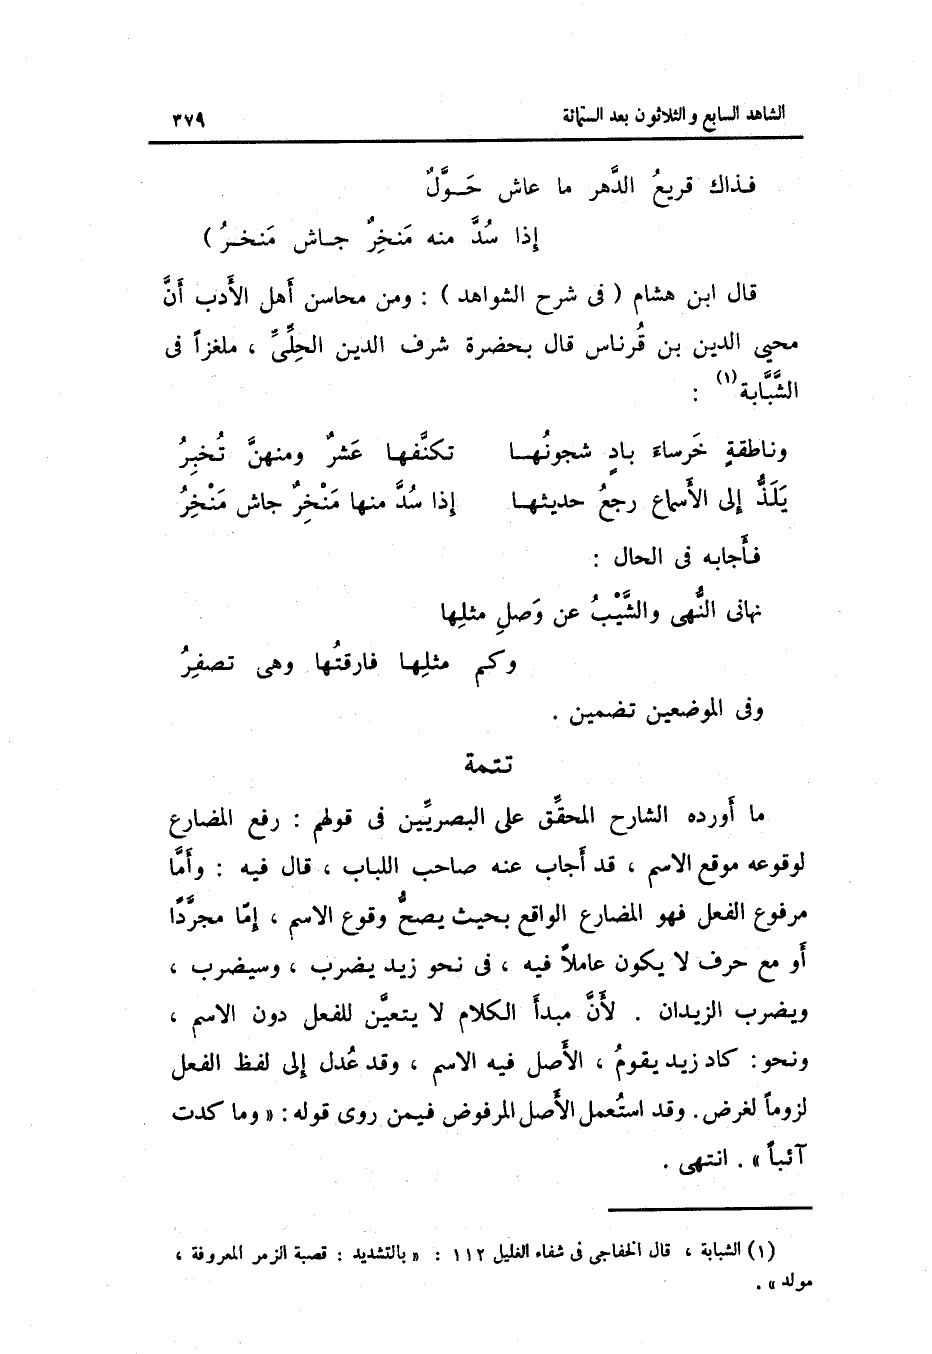 الشاهد السابع والثلاثون بعد الستمائة ٣٧٩
فذاك قريعُ الدَّهر ما عاش حَوَّلٌ
إذا سُدَّ منه مَنخِرٌ جاش مَنخرُ )
قال ابن هشام ( فى شرح الشواهد ) : ومن محاسن أهل الأدب أنَّ
محيي الدين بن قُرناس قال بحضرة شرف الدين الحِلِّىِّ ، ملغزاً فى
الشَّبَّابة(١) :
وناطقةٍ خَرساءَ بادٍ شجونُها تكنَّفها عَشرٌ ومنهنَّ تُخبِرُ
يَلَذُّ إلى الأسماع رجعُ حديثها إذا سُدَّ منها مَنْخِرٌ جاش مَنْخِرُ
فأجابه فى الحال :
نهانى النُّهى والشَّيْبُ عن وَصلِ مثلِها
وكم مثلِها فارقتُها وهى تصفِرُ
وفى الموضعين تضمين .
تتمة
ما أورده الشارح المحقِّق على البصريِّين فى قولهم : رفع المضارع
لوقوعه موقع الاسم ، قد أجاب عنه صاحب اللباب ، قال فيه : وأمَّا
مرفوع الفعل فهو المضارع الواقع بحيث يصحُّ وقوع الاسم ، إمّا مجرَّدًا
أو مع حرف لا يكون عاملاً فيه ، فى نحو زيد يضرب ، وسيضرب ،
ويضرب الزيدان . لأنَّ مبدأ الكلام لا يتعيَّن للفعل دون الاسم ،
ونحو : كاد زيد يقومُ ، الأصل فيه الاسم ، وقد عُدل إلى لفظ الفعل
لزوماً لغرض . وقد استُعمل الأصل المرفوض فيمن روى قوله : « وما كدت
آئباً » . انتهى .
(١) الشبابة ، قال الخفاجى فى شفاء الغليل ١١٢ : « بالتشديد : قصبة الزمر المعروفة ،
مولد » .